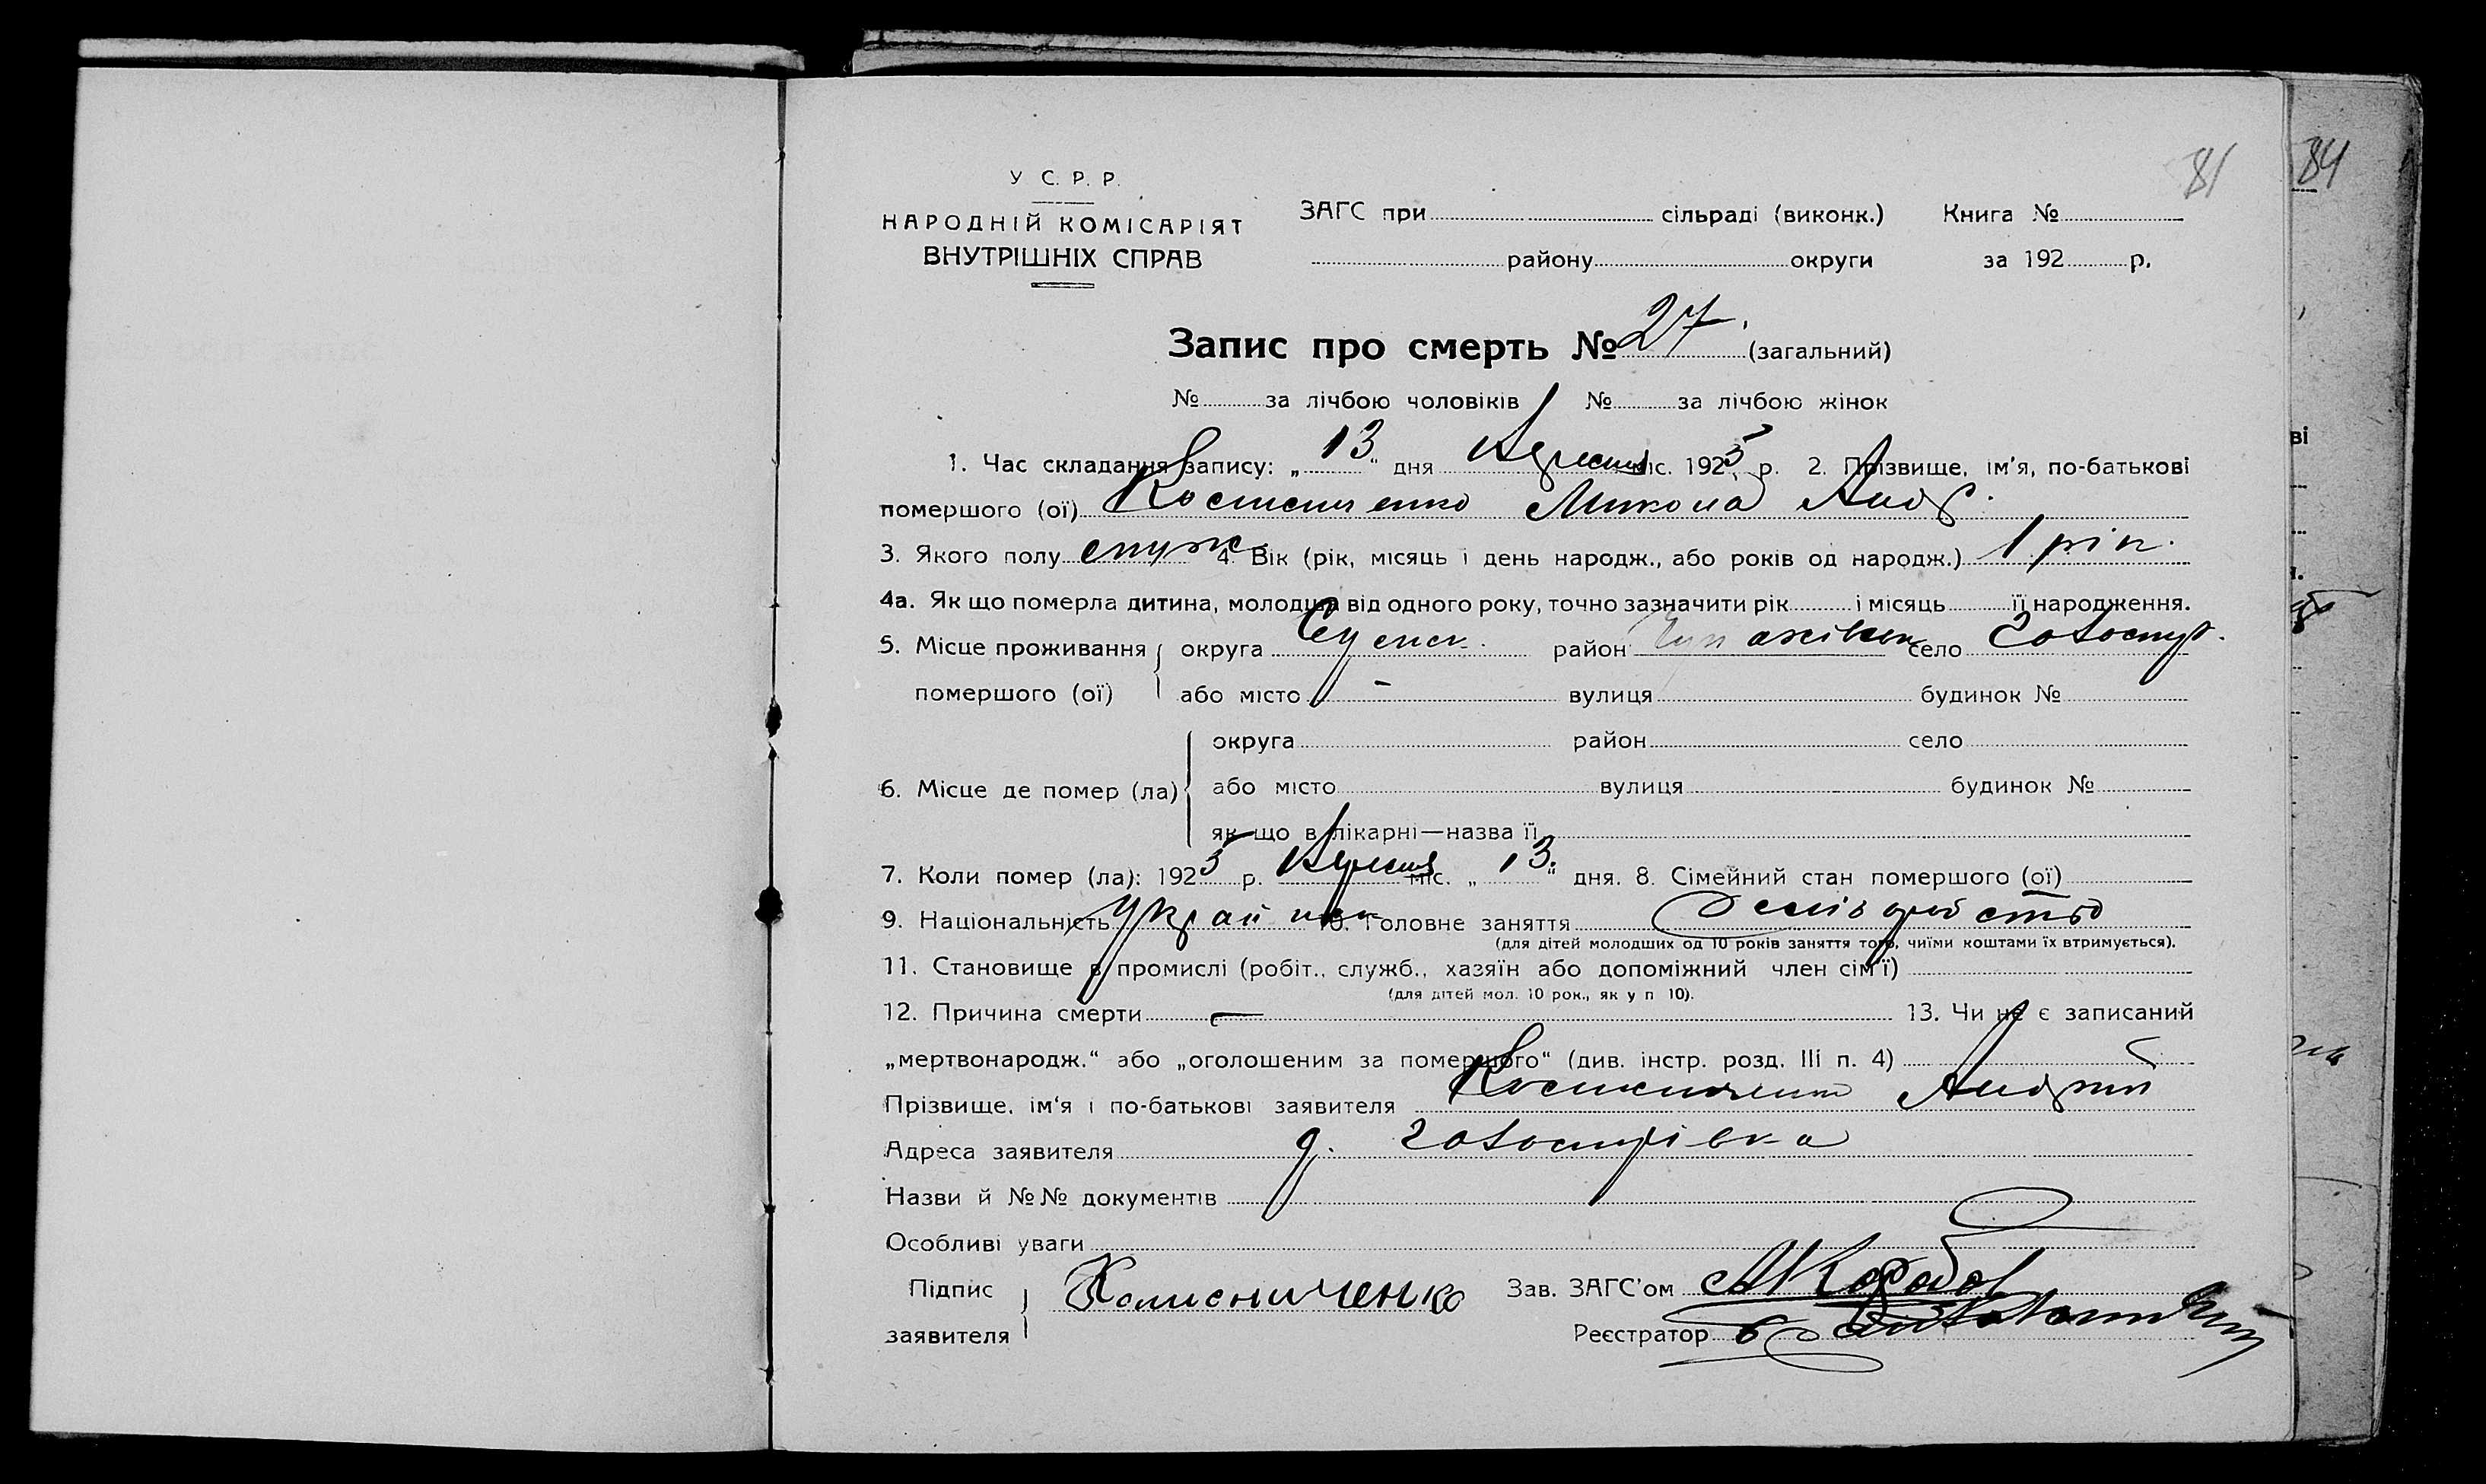 81
84
У С. Р. Р.
НАРОДНІЙ КОМІСАРІЯТ
ВНУТРІШНІХ СПРАВ
ЗАГС при сільраді (виконк.) Книга №
району округи за 192 р.
Запис про смерть № 27. (загальний)
№ за лічбою чоловіків № за лічбою жінок
1. Час складання запису: „ 13 “ дня Вересня міс. 1925 р. 2. Прізвище, ім'я, по-батькові
помершого (ої) Микола Анд.
3. Якого полу 4. Вік (рік, місяць і день народж., або років од народж.) 1 рік.
4а. Як що померла дитина, молодша від одного року, точно зазначити рік і місяць її народження.
5. Місце проживання округа Сумск. район село
помершого (ої) або місто – вулиця будинок №
округа район село
6. Місце де помер (ла) або місто вулиця будинок №
як що в лікарні—назва її
7. Коли помер (ла): 1925 р. Вересня міс. „ 13 “ дня. 8. Сімейний стан помершого (ої) —
9. Національність 10. Головне заняття
(для дітей молодших од 10 років заняття того, чиїми коштами їх втримується).
11. Становище в промислі (робіт., служб., хазяїн або допоміжний член сім'ї)
(для дітей мол. 10 рок., як у п 10).
12. Причина смерти — 13. Чи не є записаний
„мертвонародж.“ або „оголошеним за помершого“ (див. інстр. розд. III п. 4)
Прізвище, ім'я і по-батькові заявителя Андрій
Адреса заявителя
Назви й №№ документів
Особливі уваги
Підпис Зав. ЗАГС'ом
заявителя Реєстратор